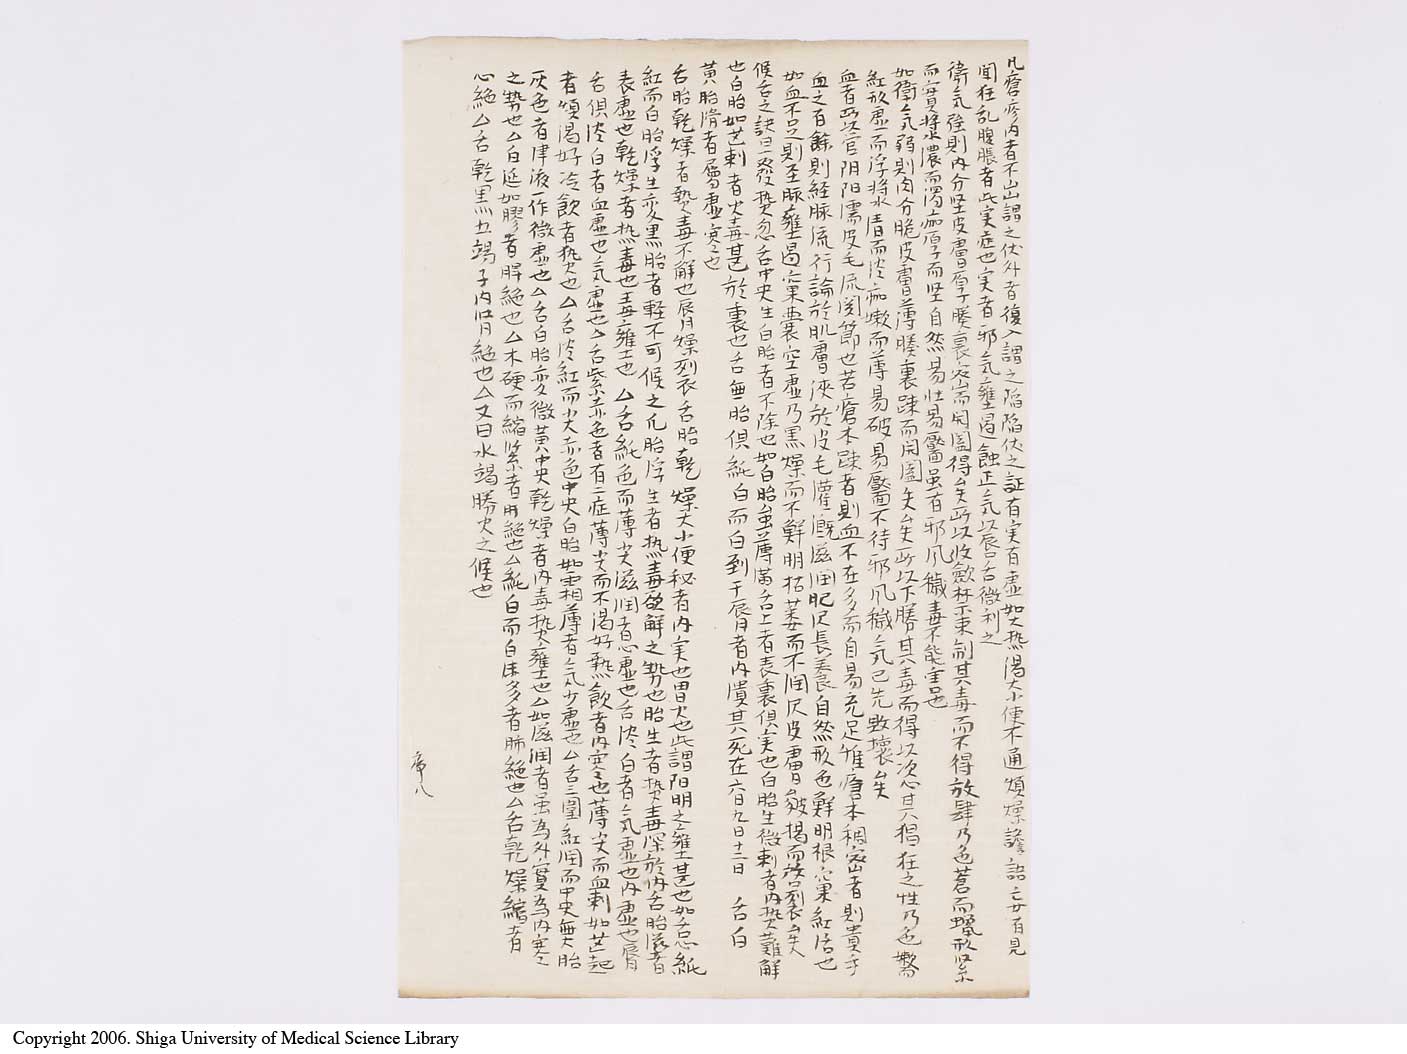 凡瘡疹内者不出謂之伏外者復入謂之陥陥伏之証有実有虚如大热渴大小便不通煩燥譫語妄有見
聞狂乱腹脹者此実症也実者邪气壅遏蝕正气以唇舌微利之
衛气強則内分坚皮膚厚腠裏密而開闔得矣所以收斂禁束制其毒而不得放肆乃色蒼而蠟形緊
而實漿濃而濁痂厚而坚自然易壮易靨虽有邪风穢毒不能害也
如衛气弱則肉分脆皮膚薄腠裏踈而開闔失矣所以不勝其毒而得以次心其猖狂之性乃色嬌
紅形虚而浮漿清而淡痂嫩而薄易破易靨不待邪风穢气已先敗壞矣
血者所以官阴阳濡皮毛流関節也若瘡本踈者則血不在多而自易充足惟瘡本稠密者則貴乎
血之有餘則経脉流行論於肌膚浹於皮毛灌漑滋润肥尺長養自然形色鮮明根窠紅活也
如血不足則至脉壅遏窠囊空虚乃黒燥而不鮮明枯萎而不润尺皮膚皺揭而發裂矣
候舌之訣曰發热忽舌中央生白胎者不除也如白胎虽薄满舌上者表裏俱実也白胎生微刺者内热難解
也白胎如芒刺者火毒甚於裏也舌無胎俱紙白而白到于唇者内潰其死在六日九日十二日 舌白
黄胎滑者属虚寒也
舌胎乾燥者热毒不解也唇燥列衣舌胎乾燥大小便秘者内実也胃火也此謂阳明之壅甚也如舌心紙
紅而白胎浮生变黒胎者軽不可候之凡胎浮生者热毒欲解之勢也胎生者热毒深於内舌胎滋者
表虚也乾燥者热毒也毒壅上也厶舌紙色而薄尖滋润者心虚也舌淡白者气虚也内虚也唇
舌俱淡白者血虚也气虚也厶舌紫尖赤色者有二症薄尖而不渴好热飲者内寒也薄尖而血刺如芒起
者煩渴好冷飲者热也厶舌淡紅而尖赤色中央白胎如霜薄者气少虚也厶舌三圍紅润而中央無胎
灰色者津液一作微虚也厶舌白胎变微黄中央乾燥者内毒热壅上也厶如滋润者虽為外實為内寒之
之勢也厶白延如膠者脾絶也厶木硬而縮紧者肝絶也厶紙白而白沫多者肺絶也厶舌乾燥縮者
心絶厶舌乾黒五竭子内腎絶也厶又曰水竭勝火之候也